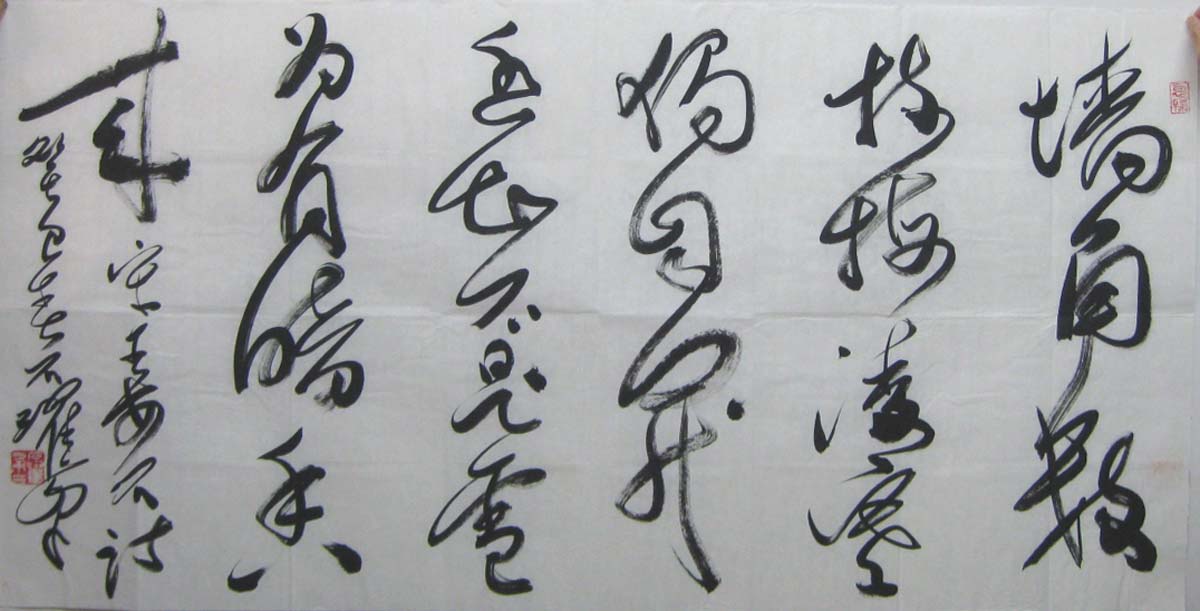 墙角数
枝梅凌寒
独自开
遥知不是雪
为有暗香
来
宋王安石诗
癸巳春石